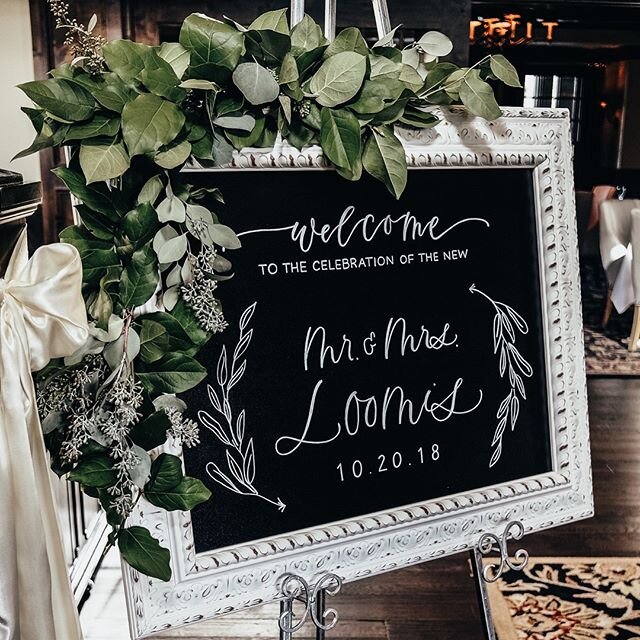 welcome
TO THE CELEBRATION OF THE NEW
Mr. & Mrs.
Loomis
10.20.18